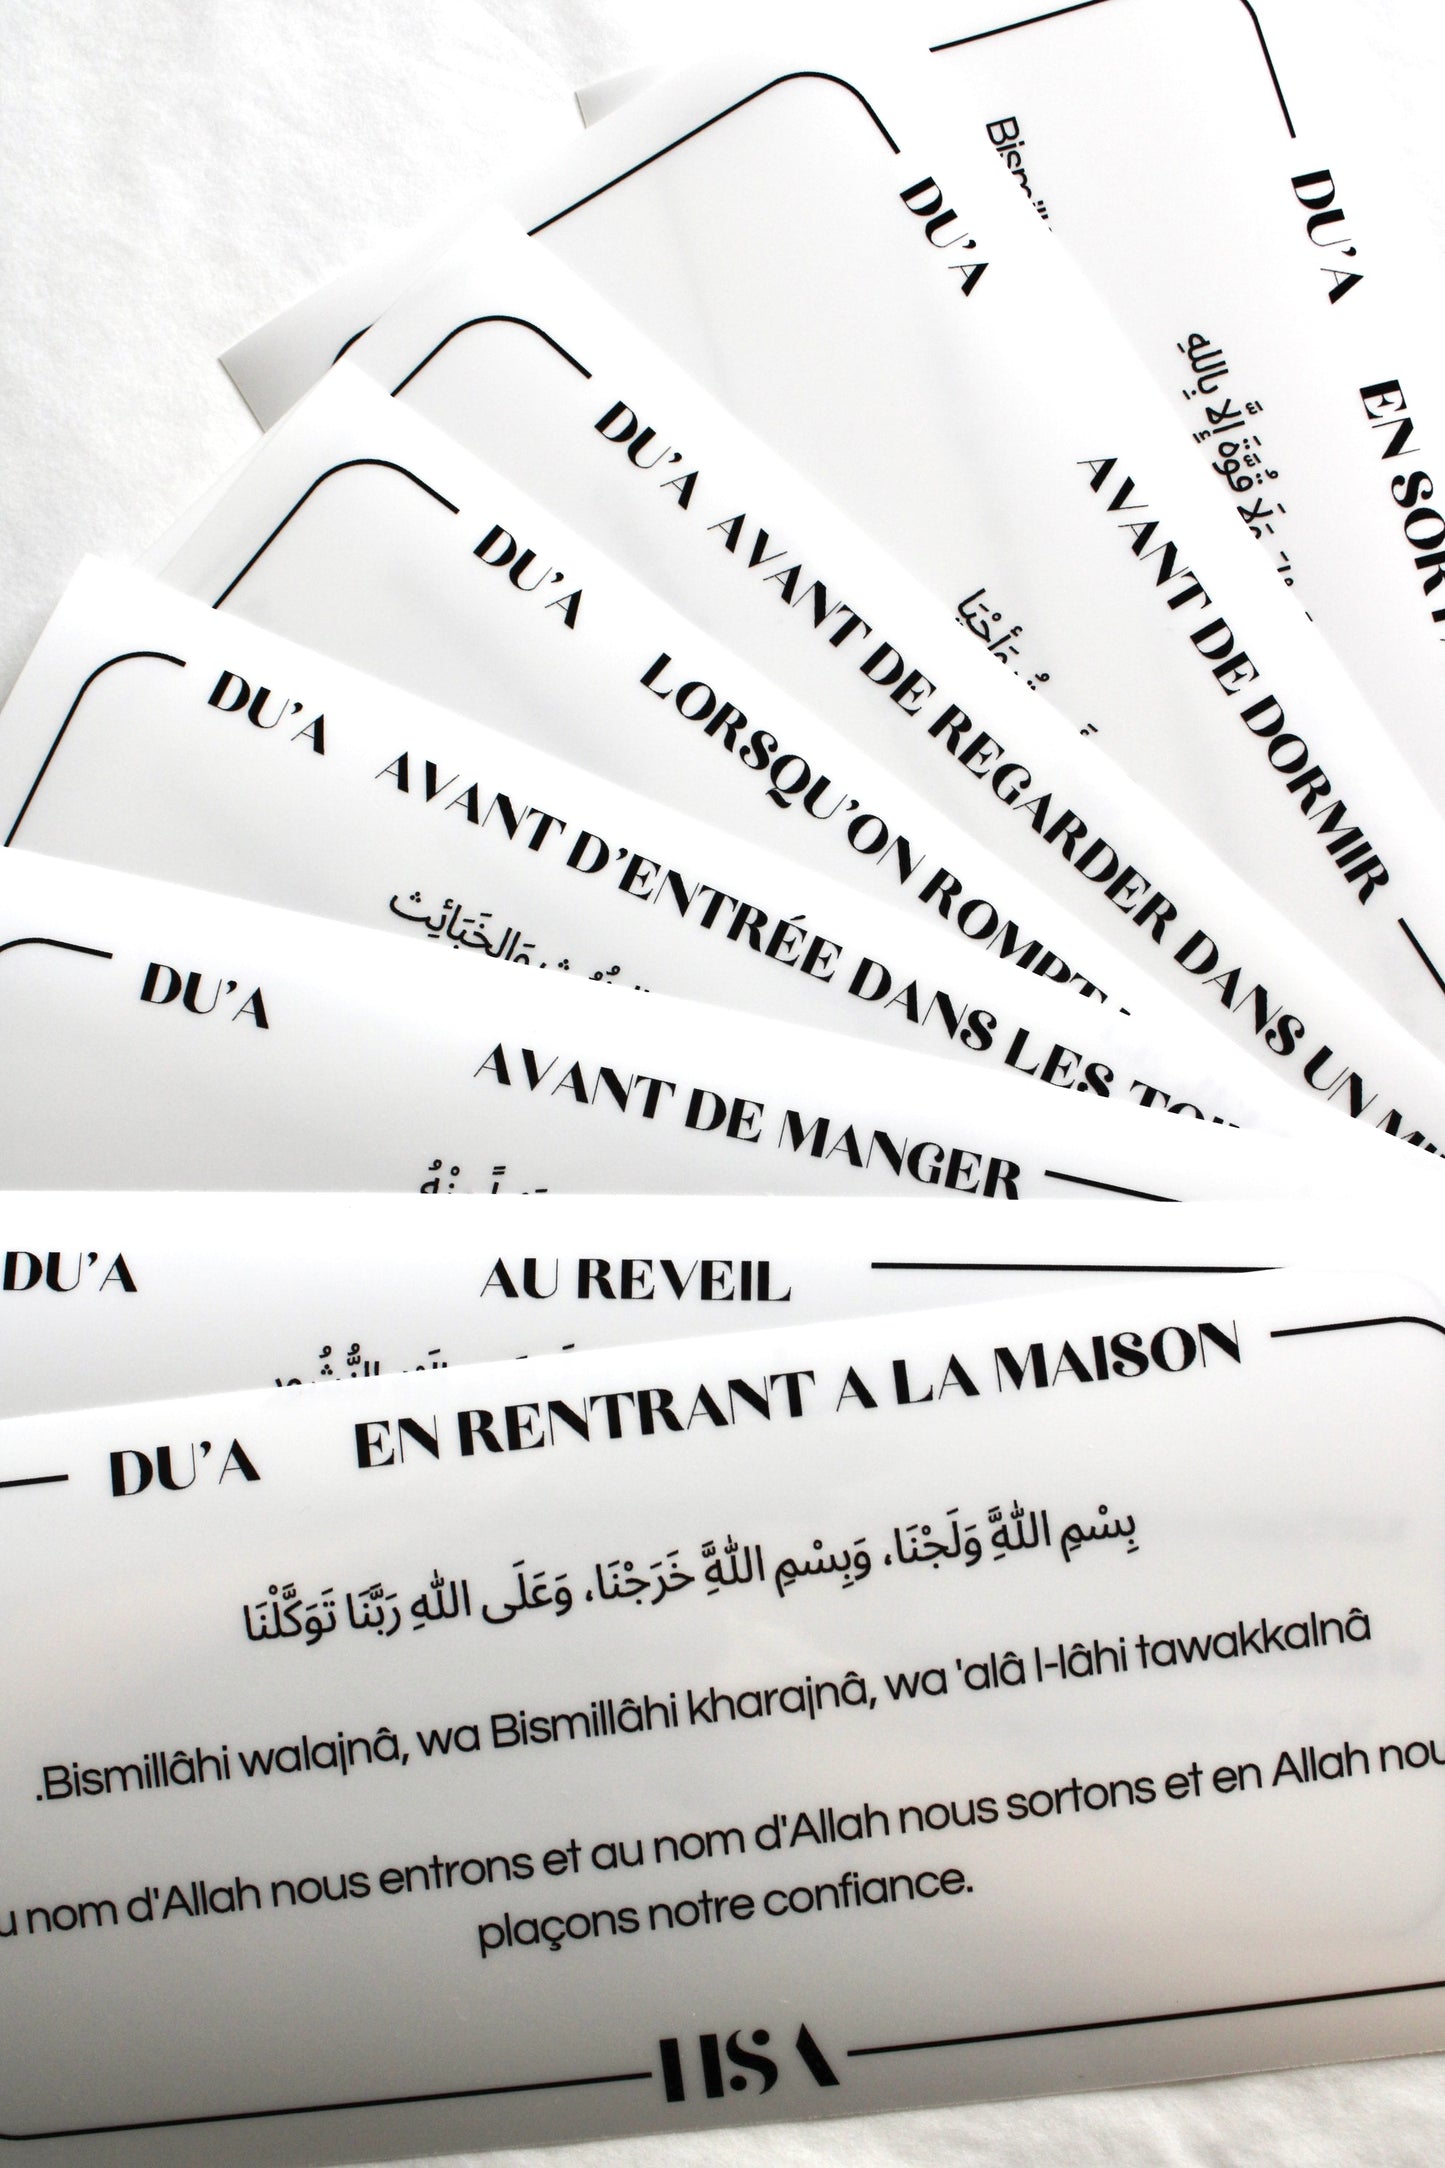 DU'A EN
قُوَّةَ إِلَّا بِاللهِ
DU'A AVANT DE DORMIR
DU'A AVANT DE REGARDER DANS UN
DU'A LORSQU'ON ROMPT
DU'A AVANT D'ENTRÉE DANS LES
وَالخَبَائِث
DU'A AVANT DE MANGER
DU'A AU REVEIL
DU'A EN RENTRANT A LA MAISON
بِسْمِ اللَّهِ وَلَجْنَا، وَبِسْمِ اللَّهِ خَرَجْنَا، وَعَلَى اللهِ رَبَّنَا تَوَكَّلْنَا
.Bismillâhi walajnâ, wa Bismillâhi kharajnâ, wa 'alâ l-lâhi tawakkalnâ
nom d'Allah nous entrons et au nom d'Allah nous sortons et en Allah
plaçons notre confiance.